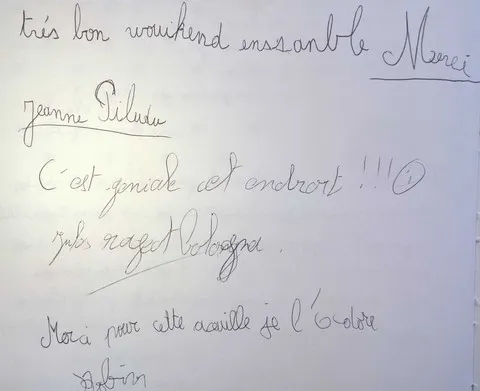 très bon wouikend enssanble Merci
Jeanne Piludu
C'est geniale cet endrort !!!
Jules
Merci pour cette acuille je l'adore
Robin